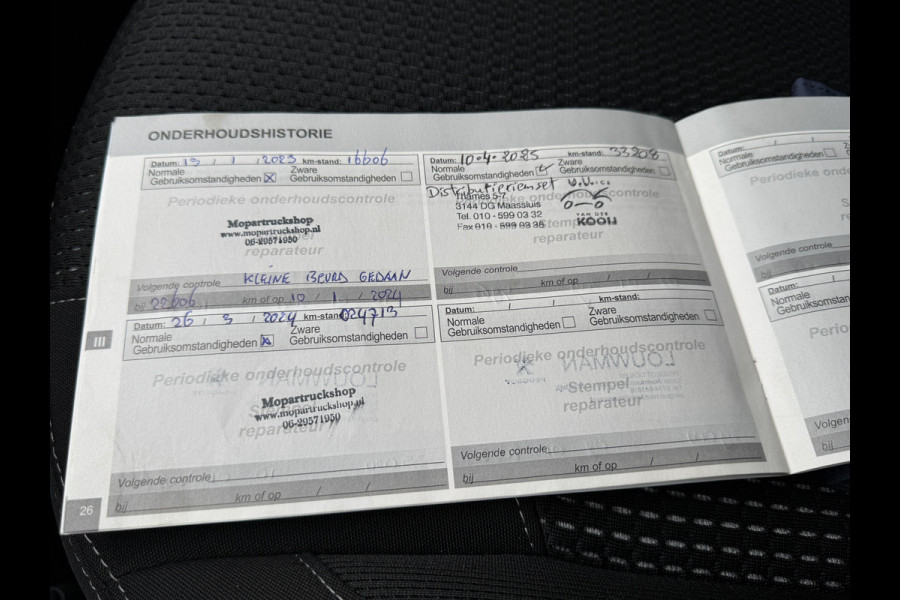 ONDERHOUDSHISTORIE
Datum: 13 / 1 / 2023 km-stand: 16606
Normale Gebruiksomstandigheden Zware Gebruiksomstandigheden
Periodieke onderhoudscontrole
Mopartruckshop
www.mopartruckshop.nl
06-29571950
reparateur
Volgende controle KLEINE BEURD GEDAAN
bij 22606 km of op 10 / 1 / 2024
Datum: 26 / 3 / 2024 km-stand: 024713
Normale Gebruiksomstandigheden Zware Gebruiksomstandigheden
Periodieke onderhoudscontrole
Mopartruckshop
www.mopartruckshop.nl
06-29571950
reparateur
Volgende controle
bij km of op / /
III
26
Datum: 10-4-2025 km-stand: 33208
Normale Gebruiksomstandigheden Zware Gebruiksomstandigheden
Distributieriemset
onderhoudscontrole
3144 DG Maassluis
Tel. 010 - 599 03 32
Fax 010 - 599 03 35
VAN DER KOOIJ
Stempel
reparateur
Volgende controle
bij km of op / /
Datum: / / km-stand:
Normale Gebruiksomstandigheden Zware Gebruiksomstandigheden
Periodieke onderhoudscontrole
LOUWMAN
Stempel
reparateur
Volgende controle
bij km of op / /
Datum: / /
Normale
Gebruiksomstandigheden
Periodieke onderh
Volgende controle
bij
Datum:
Normale
Gebruiksomstand
Perio
Volgen
bij